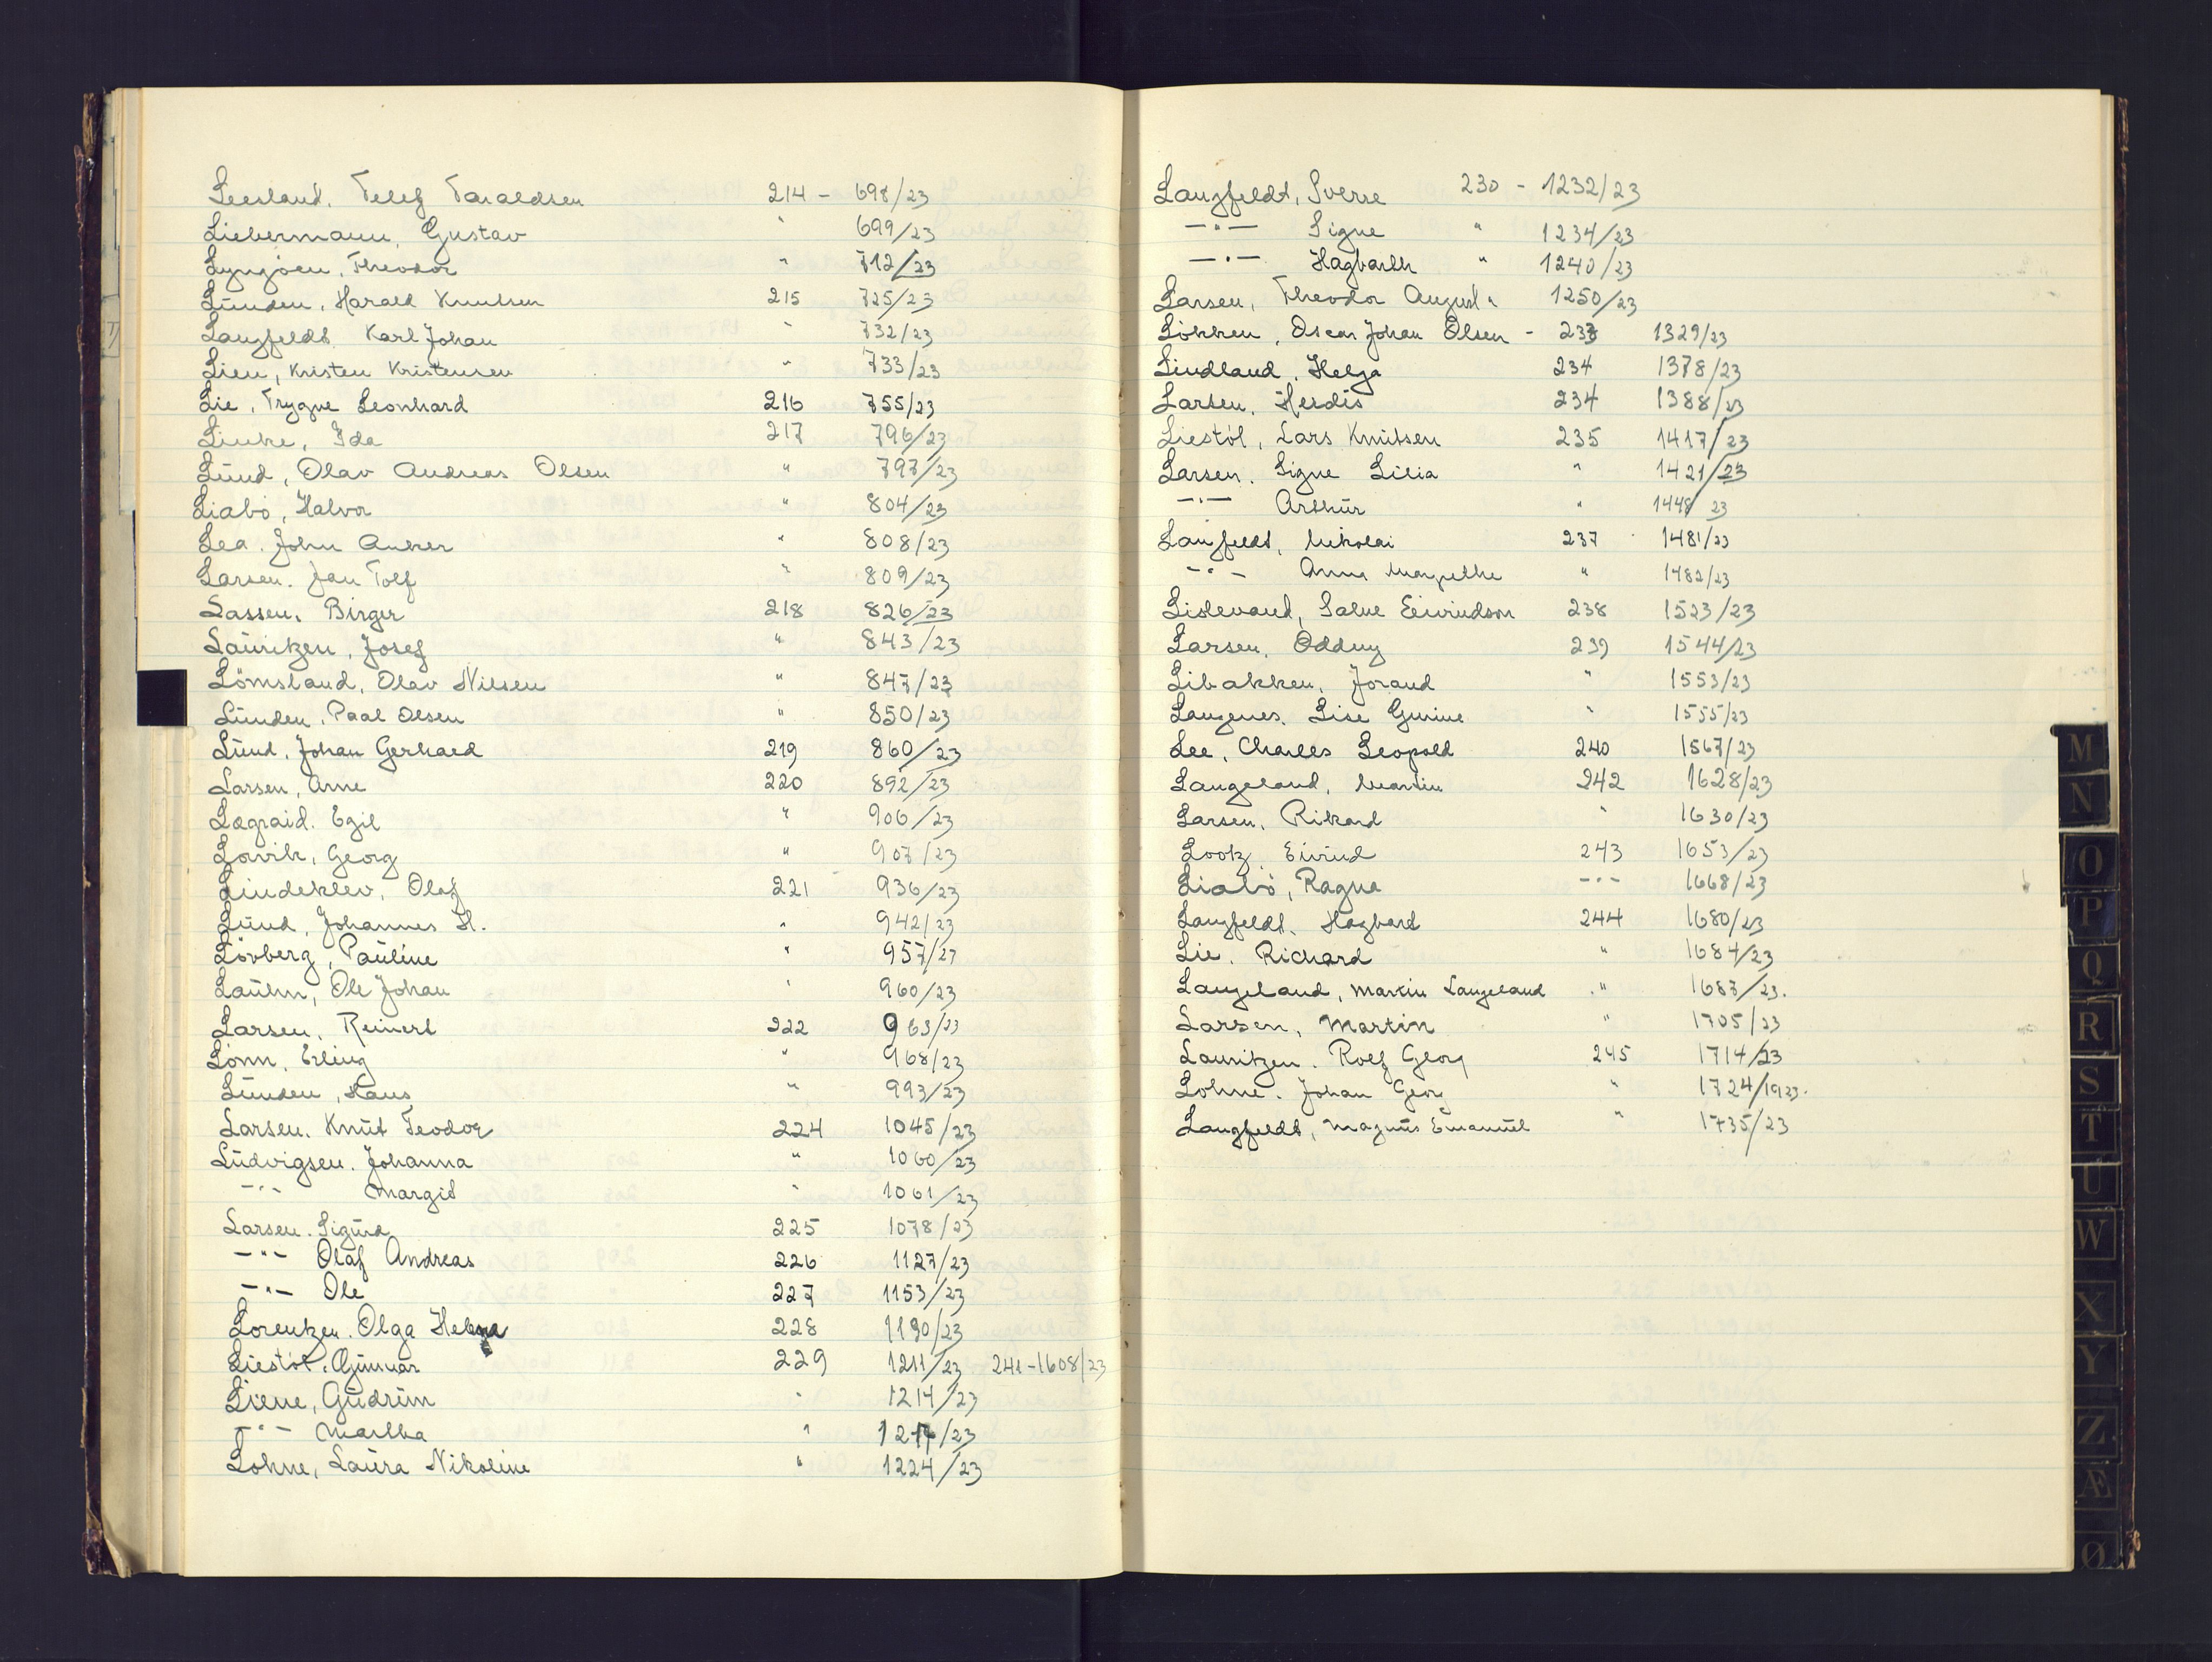 Leesland, Tellef Taraldsen 214 - 698/23
Liebermann, Gustav " 699/23
Lyngåen, Theodor " 712/23
Lunden, Harald Knutsen 215 725/23
Langfeldt, Karl Johan " 732/23
Lien, Kristen Kristensen " 733/23
Lie, Trygve Leonhard 216 755/23
Linke, Ida 217 796/23
Lund, Olav Andreas Olsen " 797/23
Liabö, Halvor " 804/23
Lea, John Anker " 808/23
Larsen, Jan Tolf " 809/23
Lassen, Birger 218 826/23
Lauritzen, Josef " 843/23
Lömsland, Olav Nilsen " 847/23
Lunden, Paal Olsen " 850/23
Lund, Johan Gerhard 219 860/23
Larsen, Arne 220 892/23
Lægraid, Egil " 906/23
Lovik, Georg " 907/23
Lindeklev, Olaf 221 936/23
Lund, Johannes H. " 942/23
Lövberg, Pauline " 957/23
Lauhn, Ole Johan " 960/23
Larsen, Reinert 222 963/23
Lönn, Erling " 968/23
Lunden, Hans " 993/23
Larsen, Knut Teodor 224 1045/23
Ludvigsen, Johanna " 1060/23
-"- Margit " 1061/23
Larsen, Sigurd 225 1078/23
-"- Olaf Andreas 226 1127/23
-"- Ole 227 1153/23
Lorentzen, Olga Helena 228 1190/23
Liestöl, Gunnar 229 1211/23 241-1608/23
Liene, Gudrun " 1214/23
-"- Martha " 1217/23
Lohne, Laura Nikoline " 1224/23
Langfeldt, Sverre 230 - 1232/23
-"- Signe " 1234/23
-"- Hagbarth " 1240/23
Larsen, Theodor August " 1250/23
Lökken, Oscar Johan Olsen - 233 1329/23
Lindland, Helga 234 1378/23
Larsen, Herdis 234 1388/23
Liestöl, Lars Knutsen 235 1417/23
Larsen, Signe Lilia " 1421/23
-"- Arthur " 1448/23
Langfeldt, Nikolai 237 1481/23
-"- Anna Margrethe " 1482/23
Listevand, Salve Eivindson 238 1523/23
Larsen, Oddny 239 1544/23
Libakken, Jorand " 1553/23
Langenes, Lise Gurine " 1555/23
Lee, Charles Leopold 240 1567/23
Langeland, Martin 242 1628/23
Larsen, Rikard " 1630/23
Lootz, Eivind 243 1653/23
Liabö, Ragna -"- 1668/23
Langfeldt, Hagbard 244 1680/23
Lie, Richard " 1684/23
Langeland, Martin Langeland " 1687/23.
Larsen, Martin " 1705/23
Lauritzen, Rolf Georg 245 1714/23
Lohne, Johan Georg " 1724/1923.
Langfeldt, Magnus Emanuel " 1735/23
M
N
O
P
Q
R
S
T
U
W
X
Y
Z
Æ
Ø